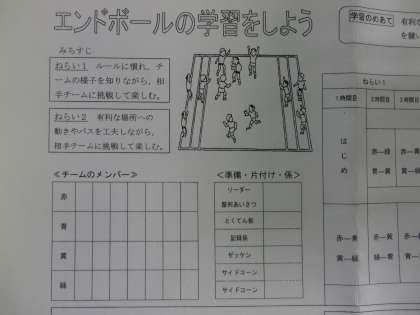 エンドボールの学習をしよう
みちすじ
ねらい1 ルールに慣れ、チ
ームの様子を知りながら、相
手チームに挑戦して楽しむ。
ねらい2 有利な場所への
動きやパスを工夫しながら、
相手チームに挑戦して楽しむ。
≪チームのメンバー≫
赤
青
黄
緑
≪準備・片付け・係≫
リーダー
整列あいさつ
とくてん板
記録係
ゼッケン
サイドコーン
サイドコーン
学習のめあて 有利な
を競い
ねらい1
1時間目 2時間目 3時間目
はじめ
赤―黄 赤―緑
青―黄
赤―青 赤―黄 赤―
黄―緑 緑―青 青―